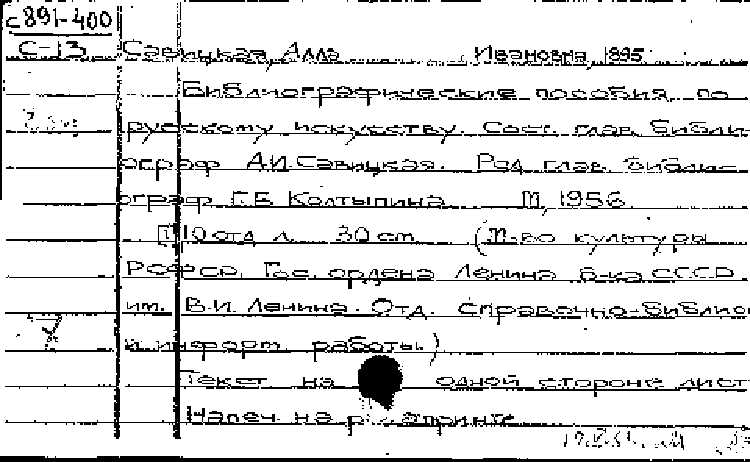 с891-400
С-13 Савицкая, Алла Ивановна, 1895
Библиографические пособия по
русскому искусству. Сост. глав. библи-
ограф А.И. Савицкая. Ред. глав. библи-
ограф Г.Б. Колтыпина. М, 1956.
10 отд л. 30 cm. (М-во культуры
РСФСР. Гос. ордена Ленина б-ка СССР
им. В.И. Ленина. Отд. справочно-библио
и информ. работы)
Текст на одной стороне лист
Напеч. на